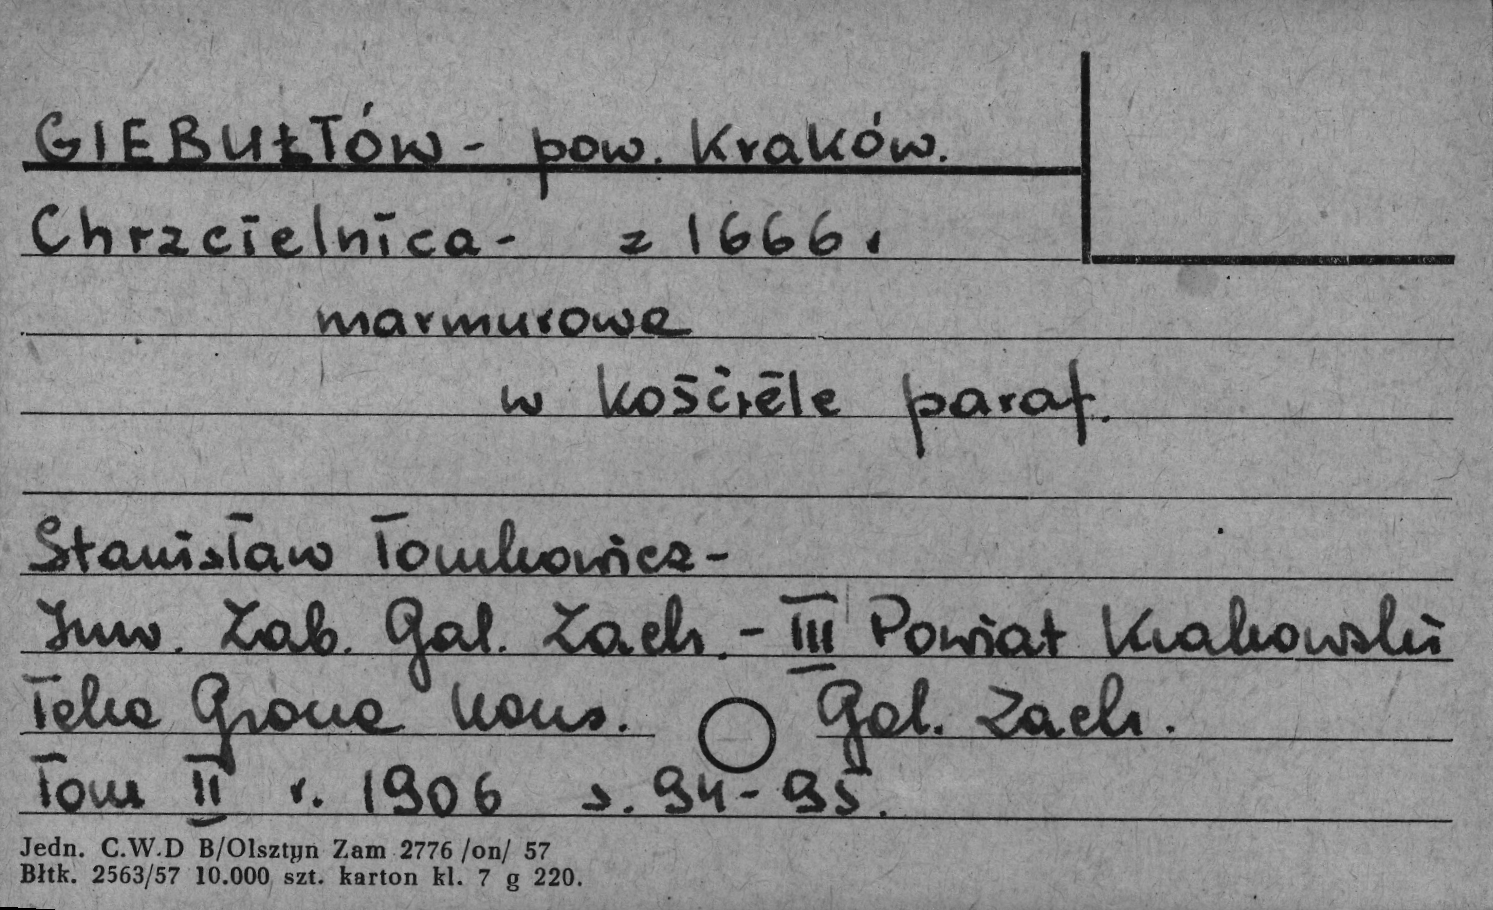 GIEBUŁTÓW - pow. Kraków.
Chrzcielnica - z 1666 r
marmurowa
w kościele paraf.
Stanisław Tomkowicz -
Inw. Zab. Gal. Zach. - III Powiat Krakowski
Teka Grona Kons. Gal. Zach.
Tom II r. 1906 s. 94-95.
Jedn. C.W.D B/Olsztyn Zam 2776 /on/ 57
Błtk. 2563/57 10.000 szt. karton kl. 7 g 220.